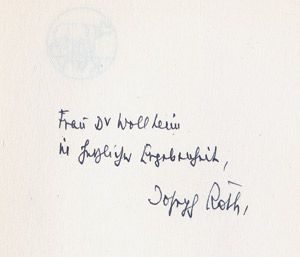 Frau Dr Wollheim
in herzlicher Ergebenheit,
Joseph Roth,